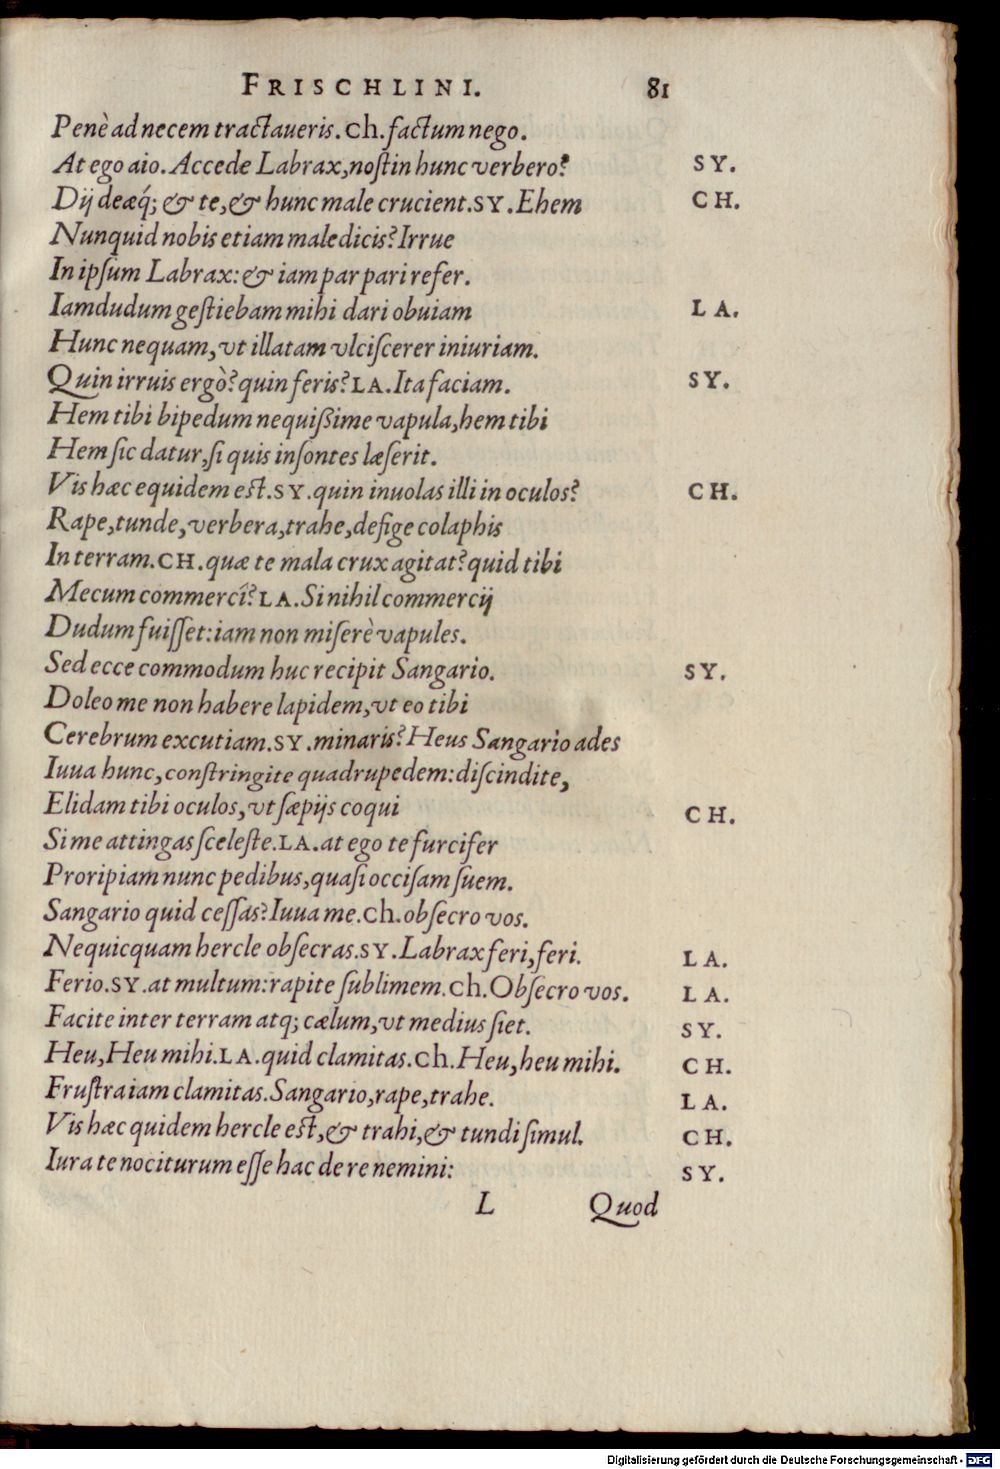 FRISCHLINI. 81
Penè ad necem tractaueris. Ch. factum nego.
At ego aio. Accede Labrax, noſtin hunc verbero? SY.
Dij deæq́; & te, & hunc male crucient. SY. Ehem CH.
Nunquid nobis etiam maledicis? Irrue
In ipſum Labrax: & iam par pari refer.
Iamdudum geſtiebam mihi dari obuiam LA.
Hunc nequam, vt illatam vlciſcerer iniuriam.
Quin irruis ergò? quin feris? LA. Ita faciam. SY.
Hem tibi bipedum nequißime vapula, hem tibi
Hem ſic datur, ſi quis inſontes læſerit.
Vis hæc equidem est. SY. quin inuolas illi in oculos? CH.
Rape, tunde, verbera, trahe, defige colaphis
In terram. CH. quæ te mala crux agitat? quid tibi
Mecum commercî? LA. Si nihil commercij
Dudum fuiſſet: iam non miſerè vapules.
Sed ecce commodum huc recipit Sangario. SY.
Doleo me non habere lapidem, vt eo tibi
Cerebrum excutiam. SY. minaris? Heus Sangario ades
Iuua hunc, conſtringite quadrupedem: diſcindite,
Elidam tibi oculos, vt ſæpijs coqui CH.
Si me attingas ſceleſte. LA. at ego te furcifer
Proripiam nunc pedibus, quaſi occiſam ſuem.
Sangario quid ceſſas? Iuua me. Ch. obſecro vos.
Nequicquam hercle obſecras. SY. Labrax feri, feri. LA.
Ferio. SY. at multum: rapite ſublimem. Ch. Obſecro vos. LA.
Facite inter terram atq; cælum, vt medius ſiet. SY.
Heu, Heu mihi. LA. quid clamitas. Ch. Heu, heu mihi. CH.
Fruſtra iam clamitas. Sangario, rape, trahe. LA.
Vis hæc quidem hercle est, & trahi, & tundi ſimul. CH.
Iura te nociturum eſſe hac de re nemini: SY.
L Quod
Digitalisierung gefördert durch die Deutsche Forschungsgemeinschaft - DFG